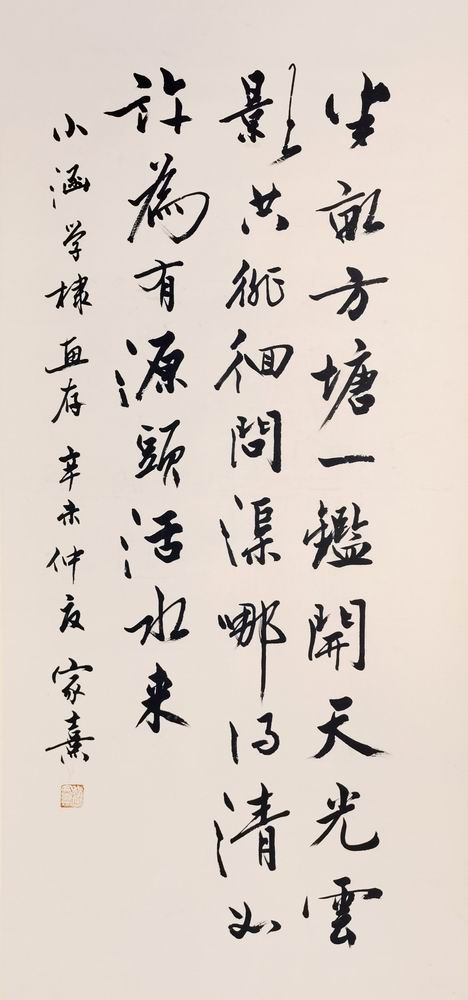 半畝方塘一鑑開天光雲
影共徘徊問渠哪得清如
許為有源頭活水来
小涵学棣画存辛未仲夏家熹